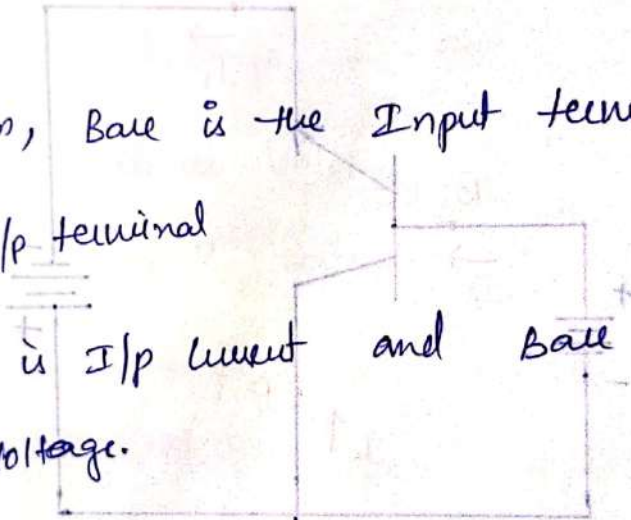 n, Base is the Input term
/p terminal
is I/p current and Base
voltage.